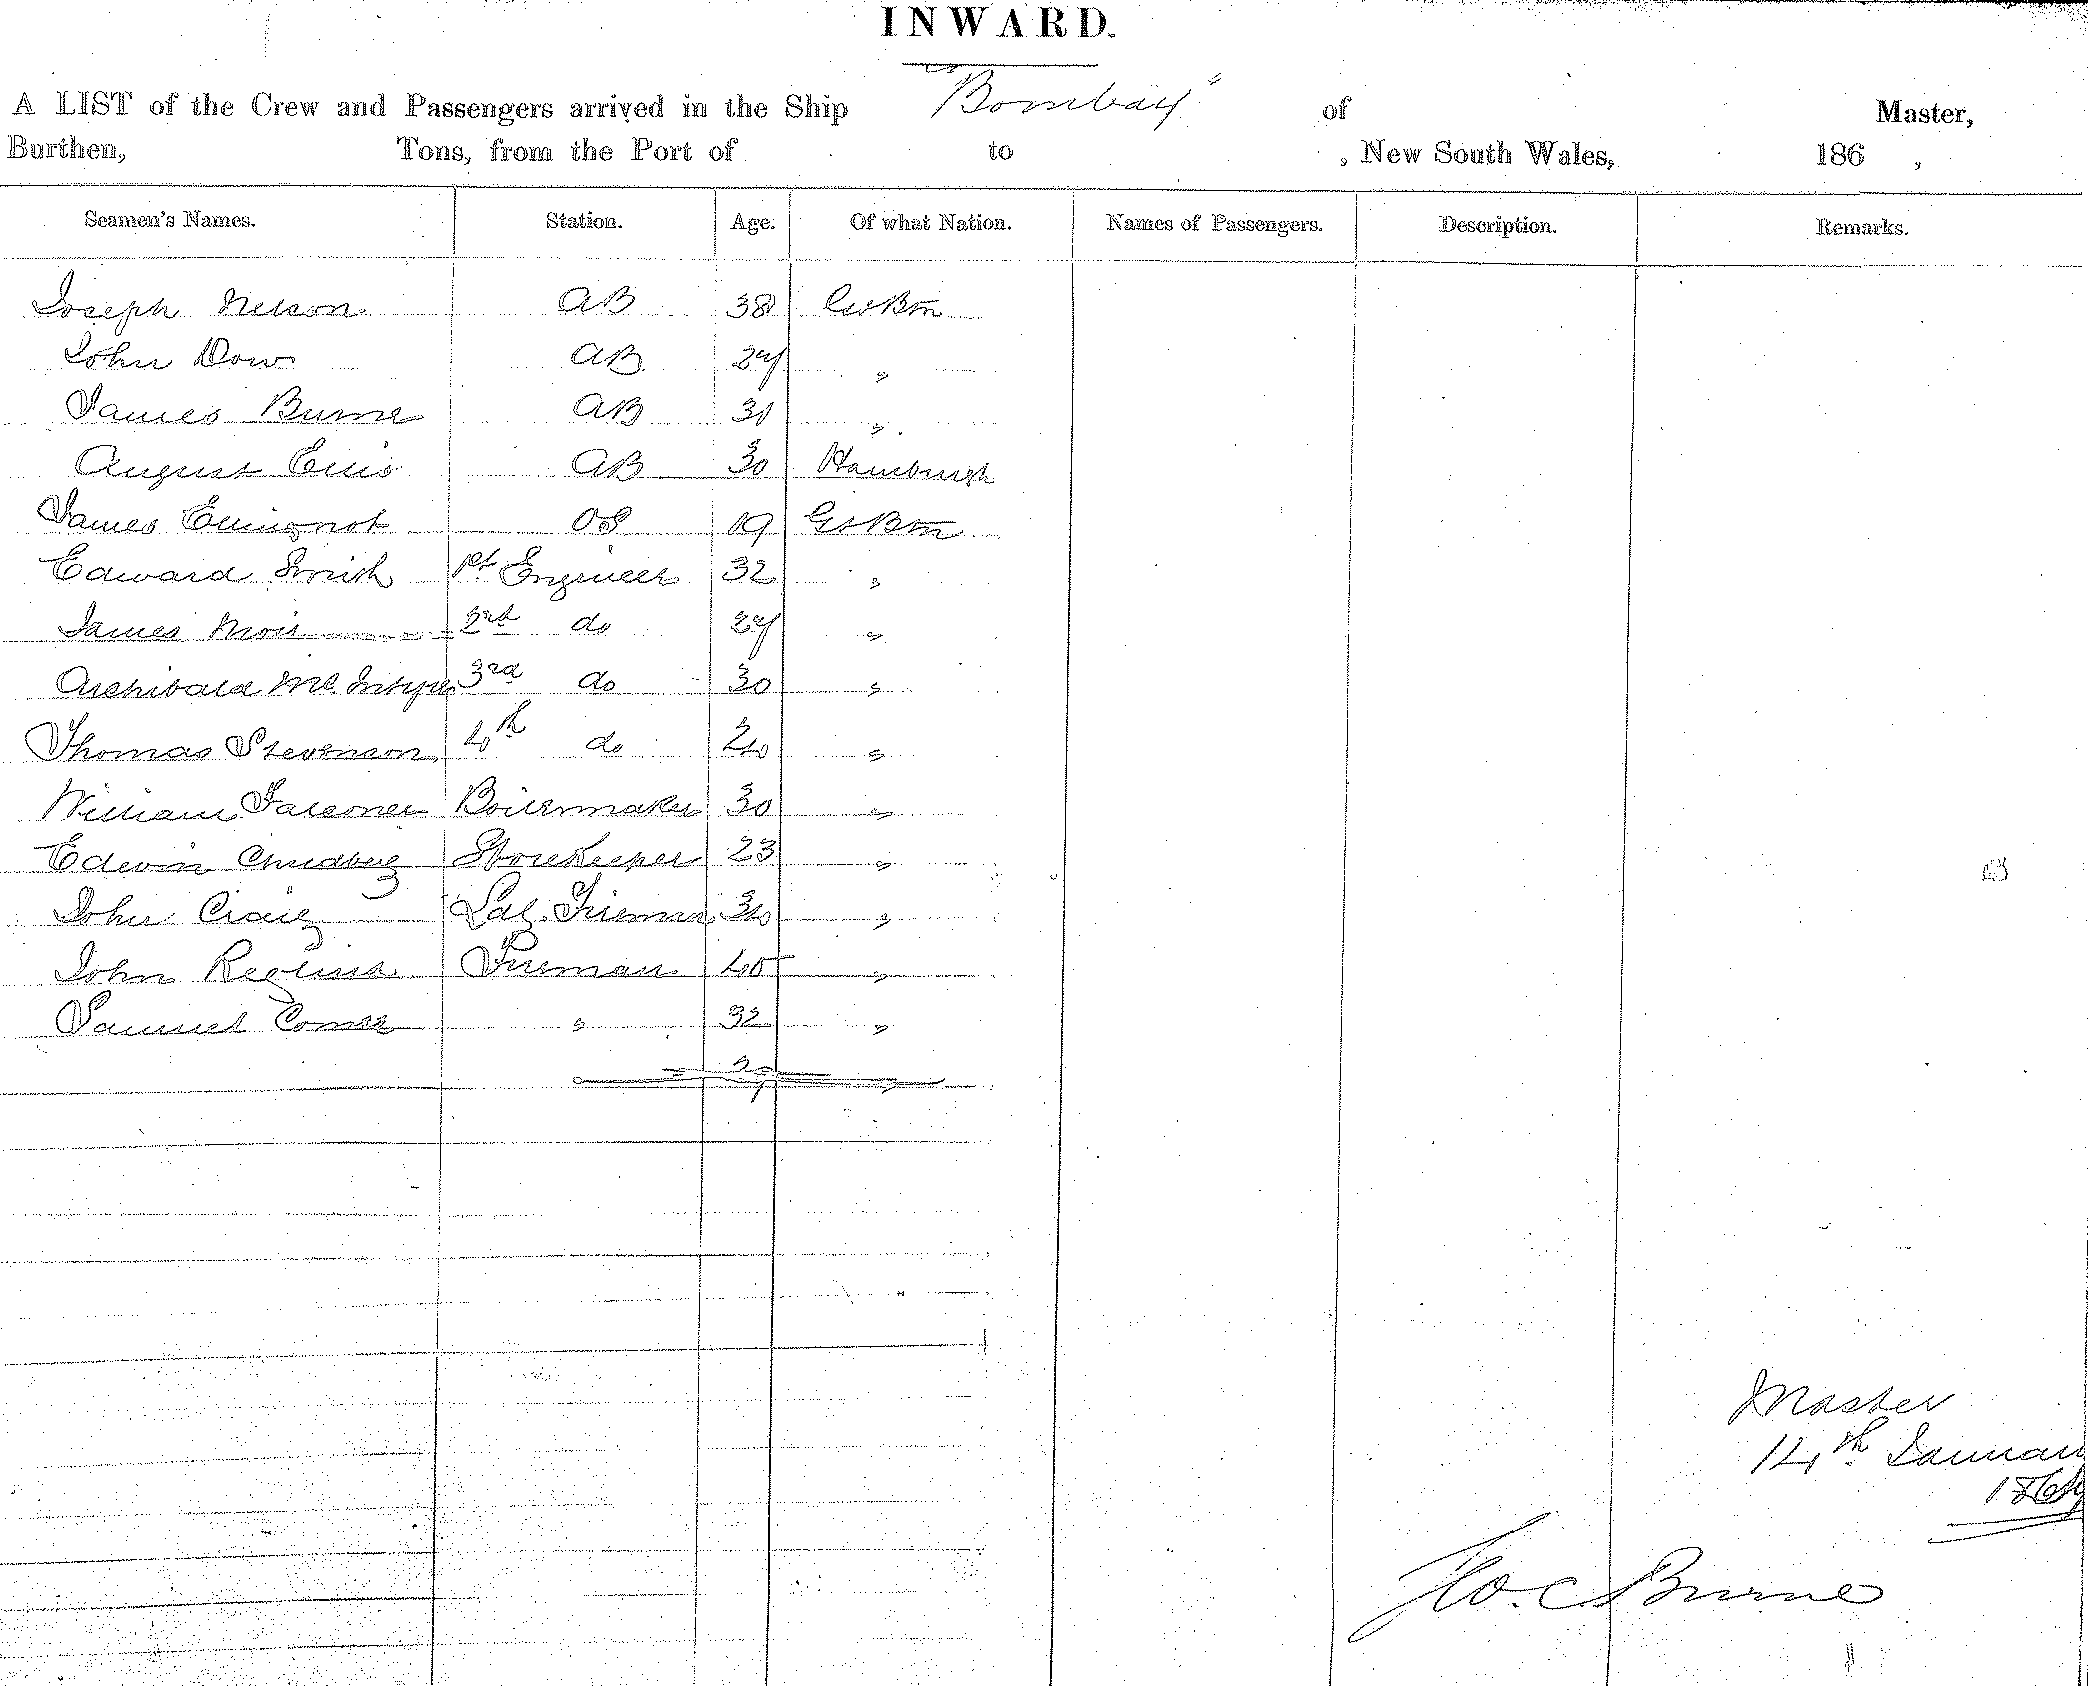 INWARD.
A LIST of the Crew and Passengers arrived in the Ship "Bombay" of Master,
Burthen, Tons, from the Port of to , New South Wales, 186 ,
Seamen's Names. Station. Age. Of what Nation. Names of Passengers. Description. Remarks.
Joseph Nelson AB 38 Gt Btn
John Dow AB 27 "
James Burne AB 31 "
August AB 30 Hamburgh
James OS 19 Gt Btn
Edward Smith 1st Engineer 32 "
James Moir 2nd do 27 "
Archibald McIntyre 3rd do 30 "
Thomas Stevenson 4th do 24 "
William Falconer Boilermaker 30 "
Edwin Storekeeper 23 "
John Craig Fireman 34 "
John Fireman 45 "
Samuel " 32 "
Master
14th January
186
Burne